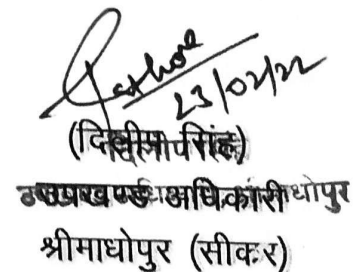 Rathore
23/02/22
(दिलीप सिंह)
उपखण्ड अधिकारी
श्रीमाधोपुर (सीकर)